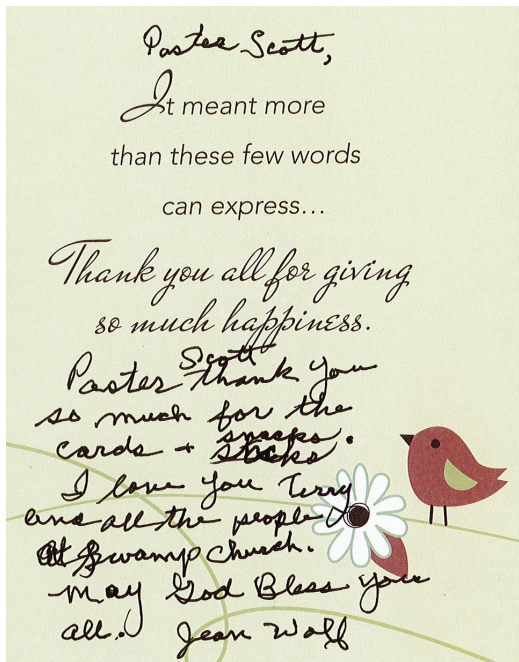 Paster Scott,
It meant more
than these few words
can express...
Thank you all for giving
so much happiness.
Scott
Paster thank you
so much for the
cards + snacks.
I love you Terry
and all the people
at Swamp Church.
May God Bless you
all. Jean Wolf